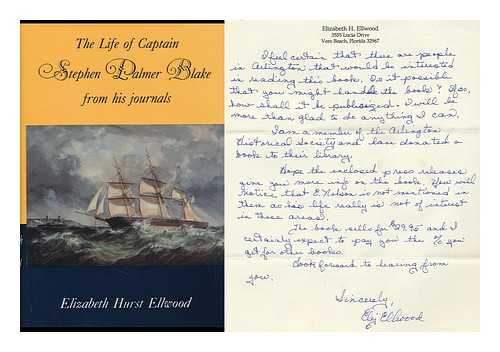 The Life of Captain
Stephen Palmer Blake
from his journals
Elizabeth Hurst Ellwood
Elizabeth H. Ellwood
3555 Lucia Drive
Vero Beach, Florida 32967
I feel certain that there are people
in Arlington that would be interested
in reading this book. Is it possible
that you might handle the book? If so,
how shall it be publicized. I will be
more than glad to do anything I can.
I am a member of the Arlington
Historical Society and have donated a
book to their library.
Hope the enclosed press releases
give you more info on the book. You will
notice that E. is not mentioned in
them as his life really is not of interest
in those areas.
The book sells for $29.95 and I
certainly expect to pay you the % you
get for other books.
Look forward to hearing from
you.
Sincerely,
Ellwood